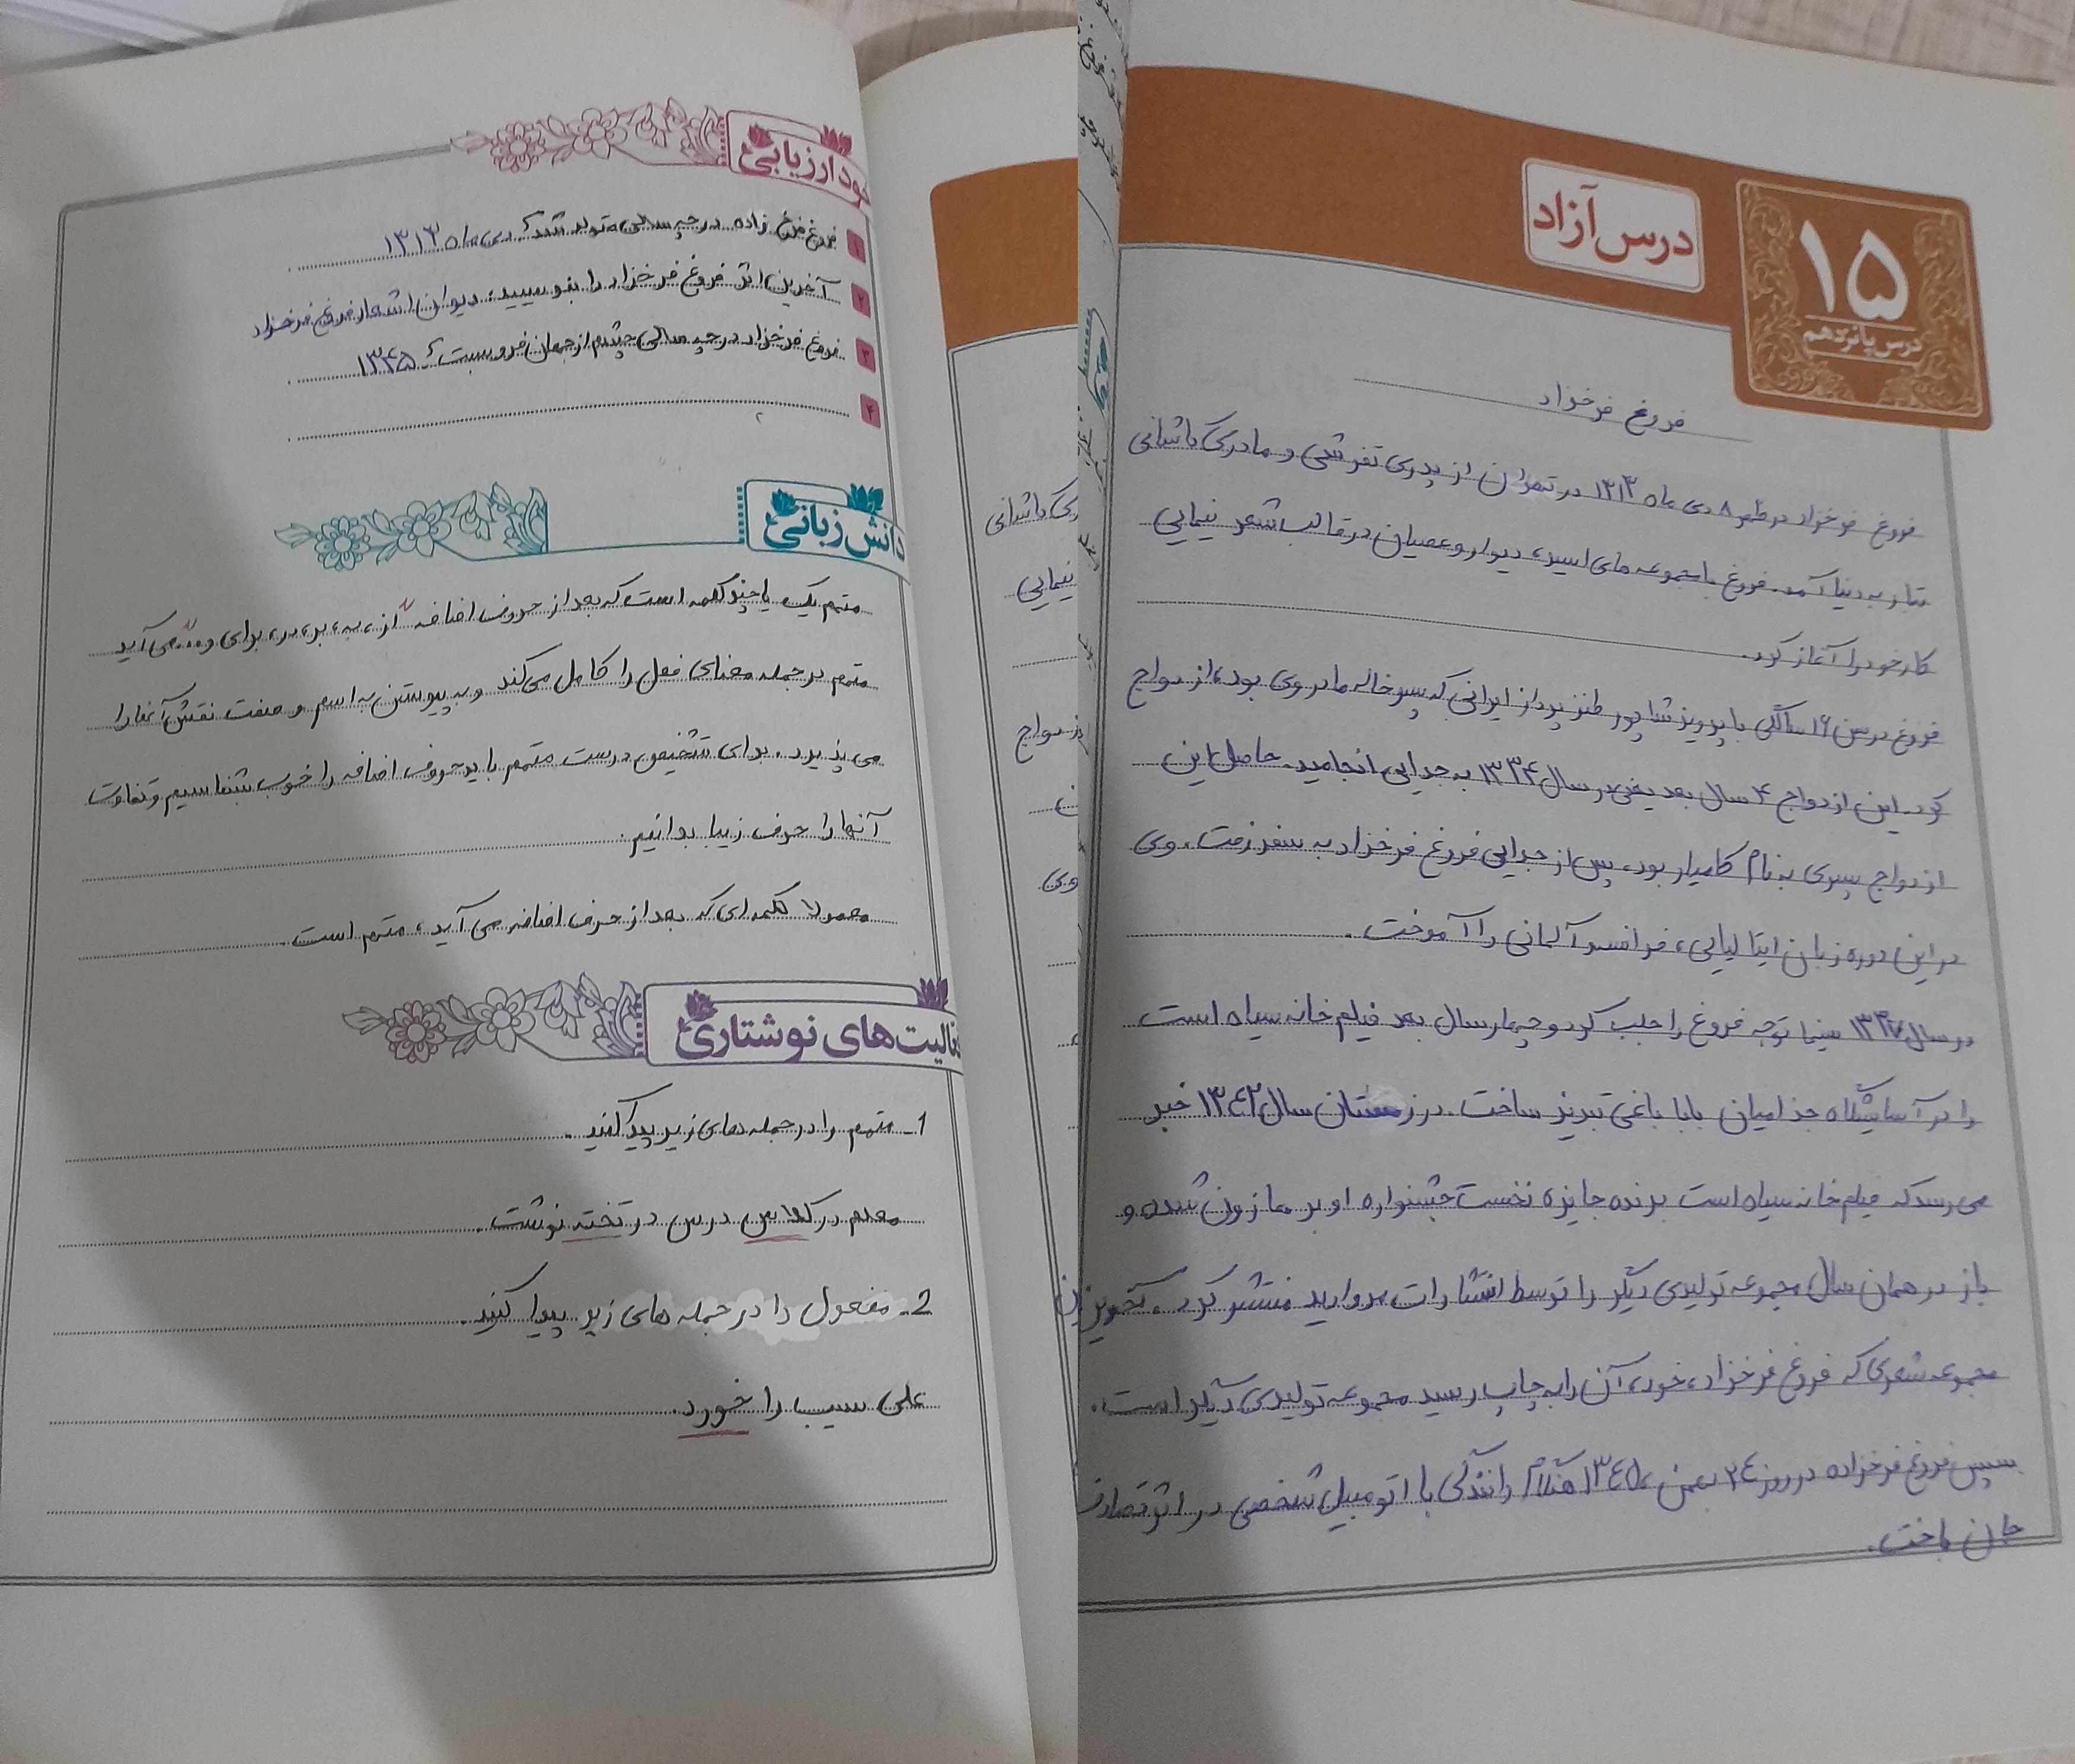 درس آزاد
۱۵
درس پانزدهم
فروغ فرخزاد
فروغ فرخزاد در ظهر ۸ دی ماه ۱۳۱۳ در تهران از پدری تفرشی و مادری کاشانی
تبار به دنیا آمد. فروغ با مجموعه های اسیر، دیوار و عصیان در قالب شعر نیمایی
کار خود را آغاز کرد.
فروغ در سن ۱۶ سالگی با پرویز شاپور طنز پرداز ایرانی که پسر خاله مادر وی بود، ازدواج
کرد. این ازدواج ۴ سال بعد یعنی در سال ۱۳۳۴ به جدایی انجامید. حاصل این
ازدواج پسری به نام کامیار بود. پس از جدایی فروغ فرخزاد به سفر رفت. وی
در این دوره زبان ایتالیایی، فرانسه و آلمانی را آموخت.
در سال ۱۳۳۷ سینما توجه فروغ را جلب کرد و چهار سال بعد فیلم خانه سیاه است
را در آسایشگاه جذامیان بابا باغی تبریز ساخت. در زمستان سال ۱۳۴۲ خبر
می رسد که فیلم خانه سیاه است برنده جایزه نخست جشنواره اوبر هازون شده و
باز در همان سال مجموعه تولدی دیگر را توسط انتشارات مروارید منتشر کرد. آخرین
مجموعه شعری که فروغ فرخزاد، خود، آن را به چاپ رسید مجموعه تولیدی دیگر است.
سپس فروغ فرخزاده در روز ۲۴ بهمن، ۱۳۴۵ هنگام رانندگی با اتومبیل شخصی در اثر تصادف
جان باخت.
خودارزیابی
۱ فروغ فرخ زاده در چه سالی متولد شد؟ دی ماه ۱۳۱۳
۲ آخرین اثر فروغ فرخزاد را بنویسید. دیوان اشعار فروغ فرخزاد
۳ فروغ فرخزاد در چه سالی چشم از جهان فرو بست؟ ۱۳۴۵
۴
دانش زبانی
متمم یک یا چند کلمه است که بعد از حروف اضافه "از، به، بر، در، برای و..." می آید
متمم در جمله معنای فعل را کامل می کند و به پیوستن به اسم و صفت نقش آنها را
می پذیرد. برای تشخیص درست متمم باید حروف اضافه را خوب بشناسیم و تفاوت
آنها را حرف زیبا بدانیم.
معمولا کلمه ای که بعد از حرف اضافه می آید، متمم است.
فعالیت‌های نوشتاری
1_ متمم را در جمله های زیر پیدا کنید.
معلم در کلاس درس در تخته نوشت.
2_ مفعول را در جمله های زیر پیدا کنید.
علی سیب را خورد.